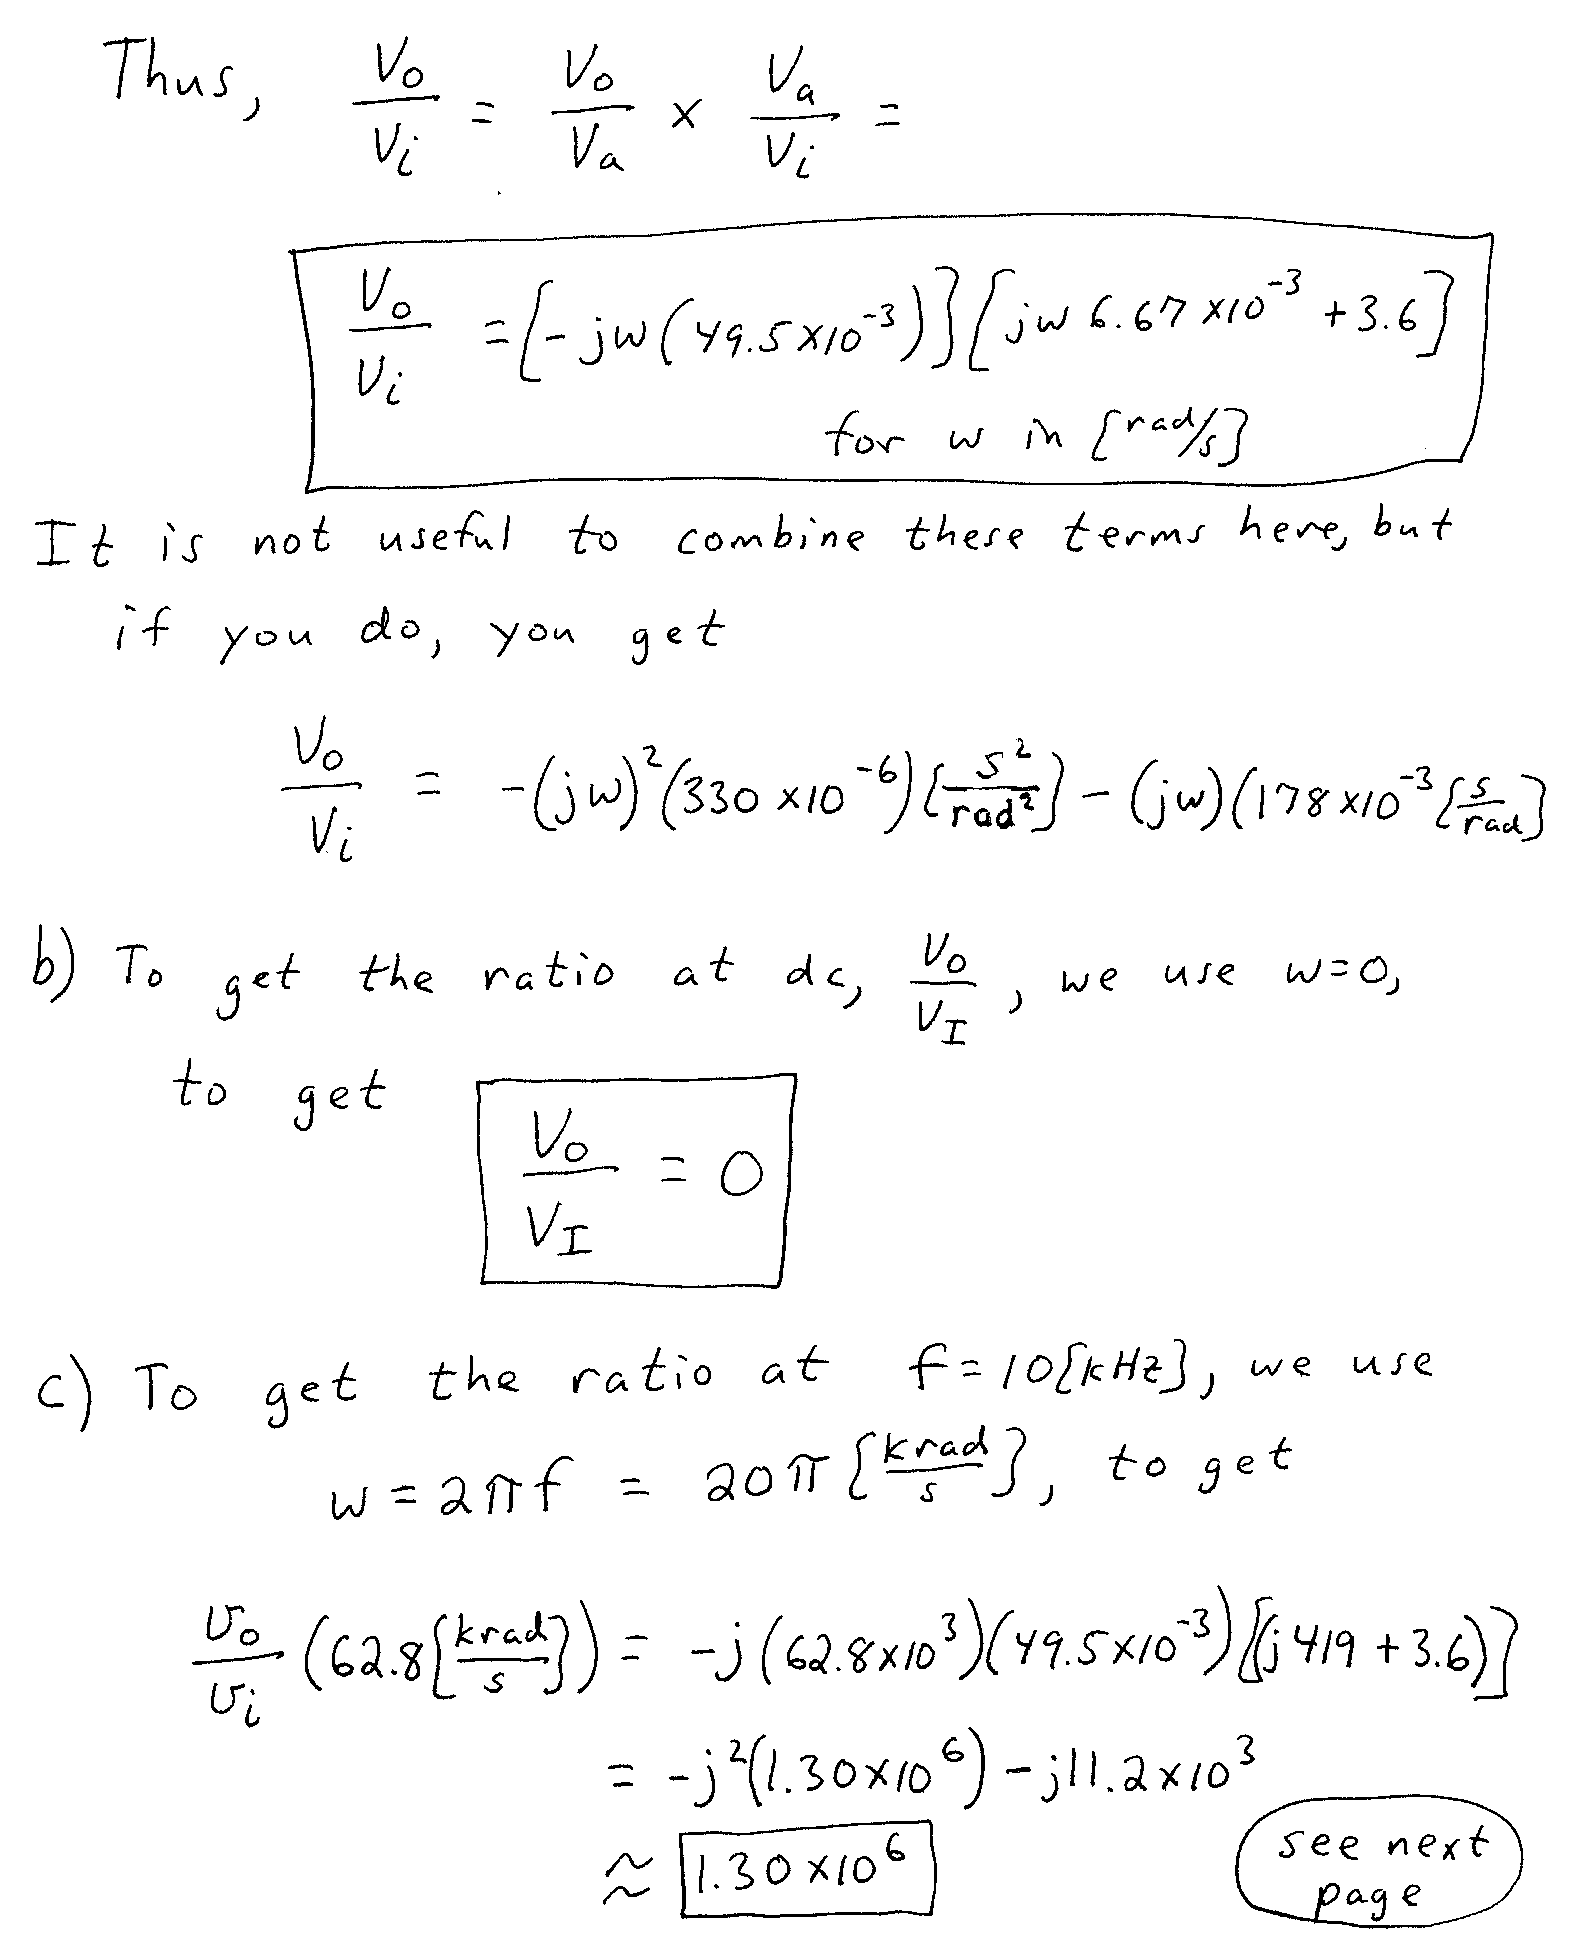 Thus, Vo/Vi = Vo/Va × Va/Vi =
Vo/Vi = [-jw(49.5×10^-3)][jw 6.67×10^-3 + 3.6]
for w in [rad/s]
It is not useful to combine these terms here, but
if you do, you get
Vo/Vi = -(jw)^2(330×10^-6)[s^2/rad^2] - (jw)(178×10^-3[s/rad]
b) To get the ratio at dc, Vo/VI, we use w=0,
to get
Vo/VI = 0
c) To get the ratio at f=10[kHz], we use
w = 2πf = 20π[krad/s], to get
vo/vi (62.8[krad/s]) = -j(62.8×10^3)(49.5×10^-3)[(j419 + 3.6)]
= -j^2(1.30×10^6) - j11.2×10^3
≈ 1.30×10^6
see next
page